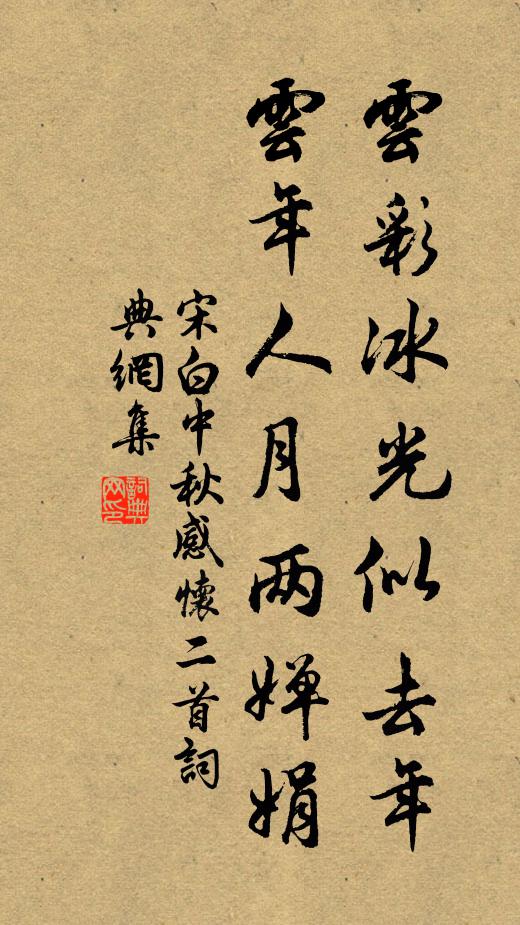 雲彩冰光似去年
雲年人月两嬋娟
宋白中秋感懷二首詞
典網集
詞典
网印